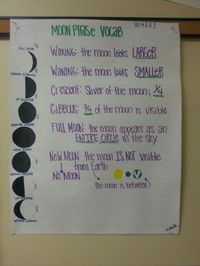 MOON PHASE VOCAB
WAXING: the moon looks LARGER
WANING: the moon looks SMALLER
Crescent: Sliver of the moon; 1/4
GIBBOUS: 3/4 of the moon is visible.
FULL MOON: the moon appears as an
ENTIRE CIRCLE in the sky
NEW MOON: the moon IS NOT visible
from Earth
NO MOON
the moon is between
FULL MOON